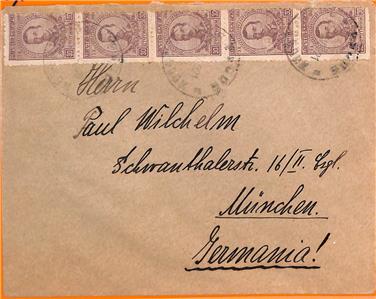 Herrn
Paul Wilchelm
Schwanthalerstr. 16/II. Egl.
München.
Germania!